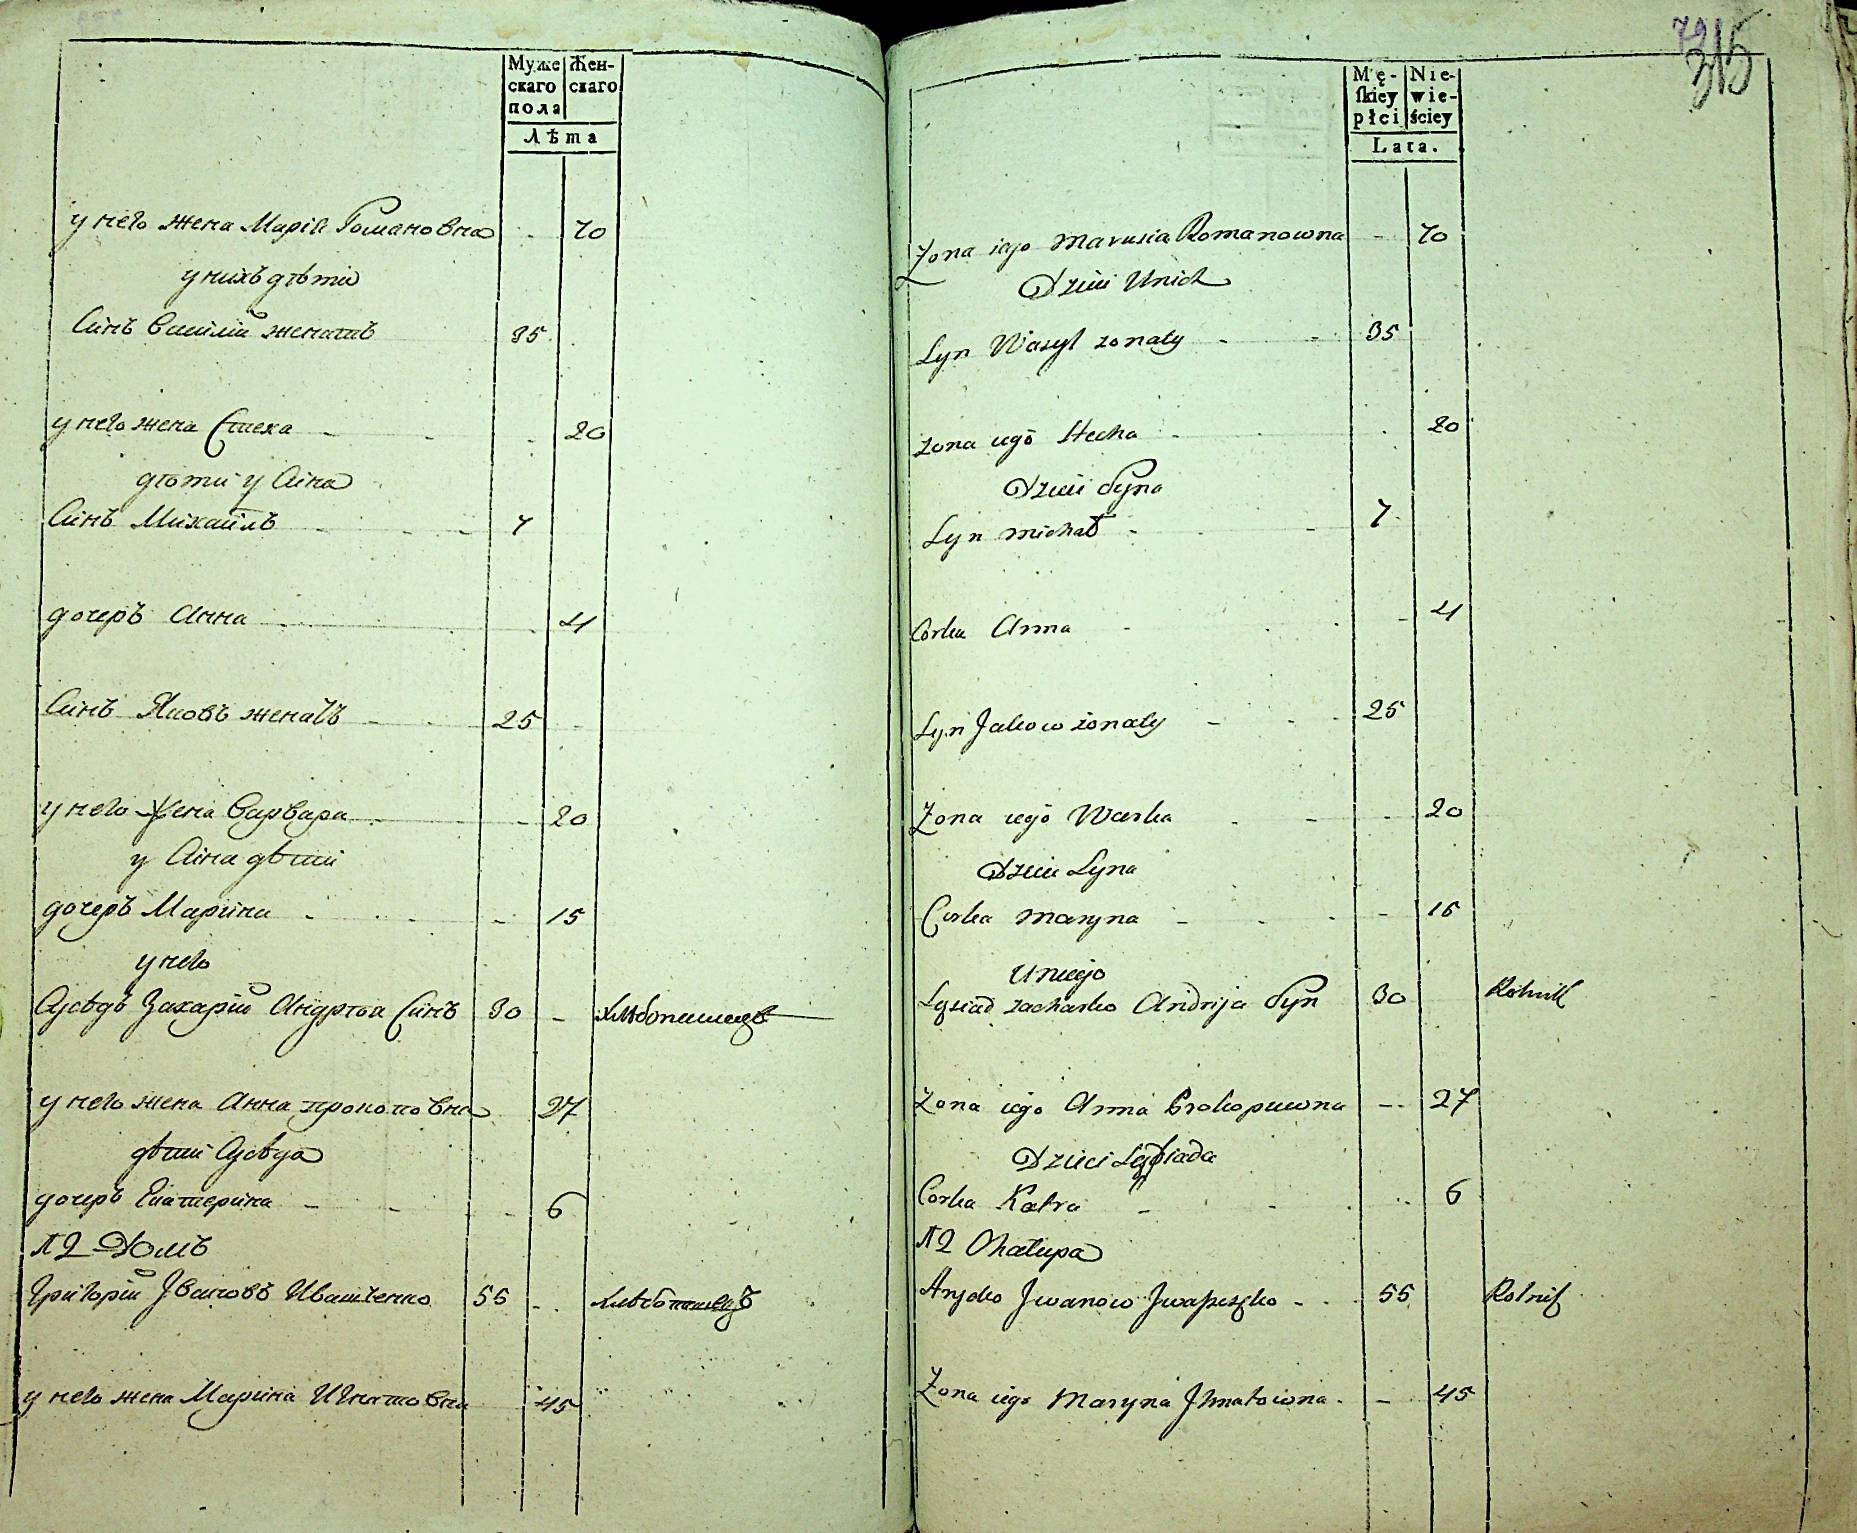 Муже Жен-
скаго скаго
пола
Лѣта
у него жена Марія Романовна - 70
у нихъ дѣти
Синъ Василій женатъ 35
у него жена Стеха - - - 20
дѣти у Сина
Синъ Михаилъ - - - 7
дочеръ Анна - 4
Синъ Яковъ женатъ - 25
у него Жена Варвара - - 20
у Сина дѣти
дочеръ Марина - - - 15
у него
Сусѣдъ Захарій Андрѣя Синъ 30 - хлѣбопашецъ
у него жена Анна Прокоповна 27
дѣти Сусѣда
дочеръ Екатерина - - - 6
№ 2 Домъ
Григорій Івановъ Ивашченко 55 - - хлѣбопашецъ
у него жена Марина Игнатовна - 45
79
315
Mę- Nie-
ſkiey wie-
płci ściey
Lata.
Zona iego Marusia Romanowna - 70
Dzieci Unich
Syn Wasyl zonaty - - 35
zona iego Stecha - - 20
Dzieci Syna
Syn Michał - - 7
Corka Anna - - 4
Syn Jakow żonaty - - - 25
Zona iego Warka - - - 20
Dzieci Syna
Corka Maryna - - - 15
Uniego
Sąsiad zacharko Andrija Syn 30 Rolnik
Zona iego Anna Prokopowna - - 27
Dzieci Sąsiada
Corka Katra - - - 6
№ 2 Chałupa
Hryćko Jwanow Jwaszczko - - - 55 Rolnik
Zona iego Maryna Jhnatowna - - 45